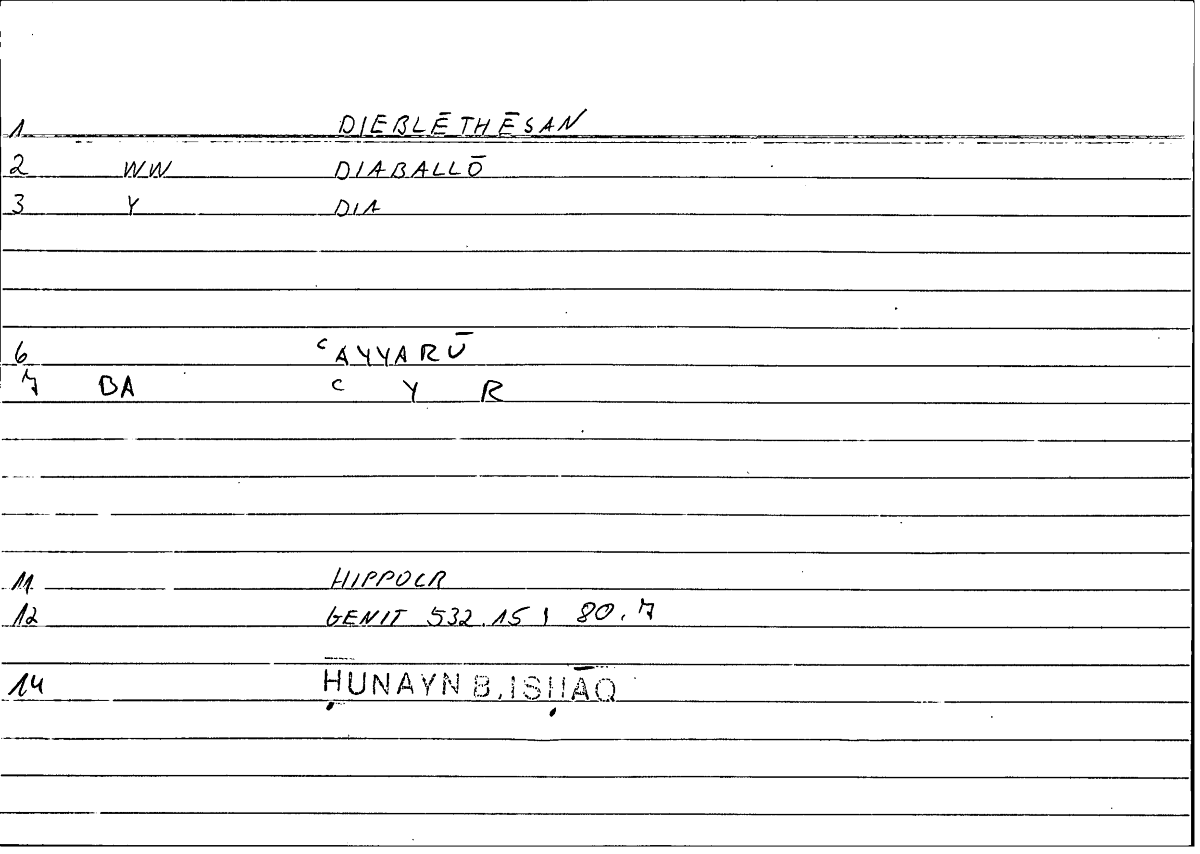 1 DIEBLĒTHĒSAN
2 WW DIABALLŌ
3 Y DIA
6 ᶜAYYARŪ
7 BA ᶜ Y R
11 HIPPOCR
12 GENIT 532.15 ; 80.7
14 ḤUNAYN B. ISḤĀQ